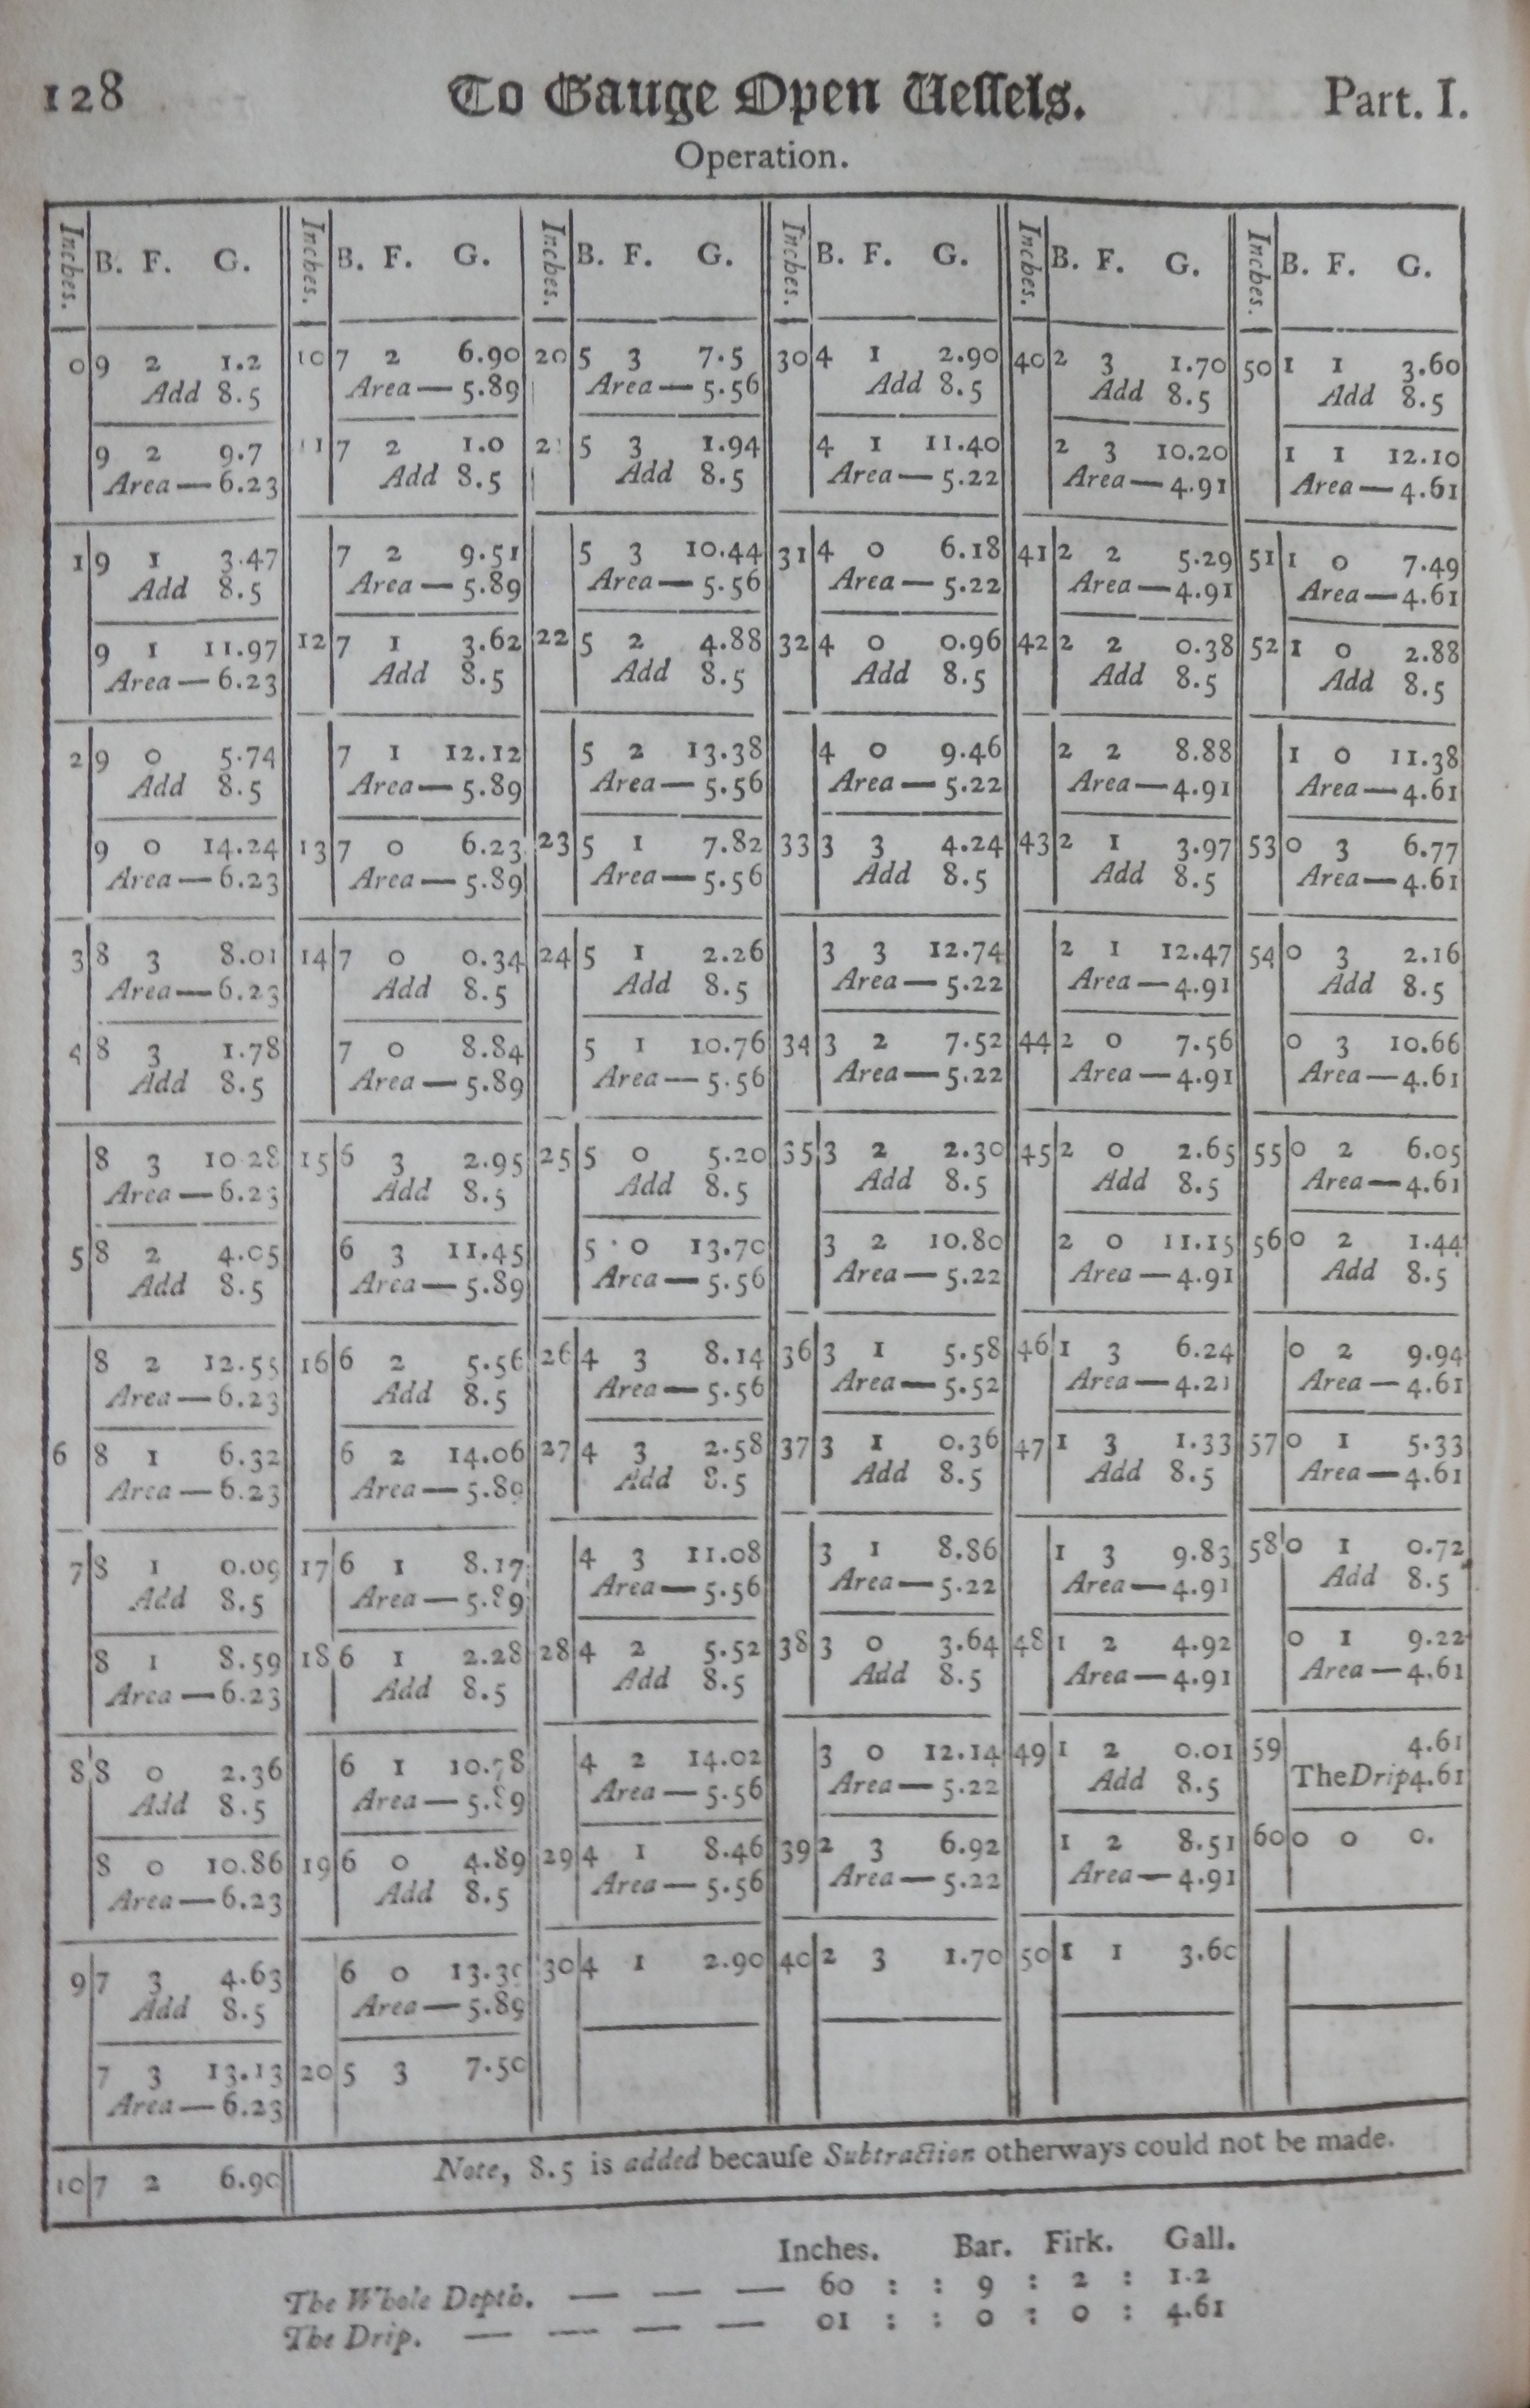 128 To Gauge Open Veſſels. Part. I.
Operation.
Inches. B. F. G.
0 9 2 1.2
Add 8.5
9 2 9.7
Area — 6.23
1 9 1 3.47
Add 8.5
9 1 11.97
Area — 6.23
2 9 0 5.74
Add 8.5
9 0 14.24
Area — 6.23
3 8 3 8.01
Area — 6.23
4 8 3 1.78
Add 8.5
8 3 10.28
Area — 6.23
5 8 2 4.05
Add 8.5
8 2 12.55
Area — 6.23
6 8 1 6.32
Area — 6.23
7 8 1 0.09
Add 8.5
8 1 8.59
Area — 6.23
8 8 0 2.36
Add 8.5
8 0 10.86
Area — 6.23
9 7 3 4.63
Add 8.5
7 3 13.13
Area — 6.23
10 7 2 6.90
Inches. B. F. G.
10 7 2 6.90
Area — 5.89
11 7 2 1.0
Add 8.5
7 2 9.51
Area — 5.89
12 7 1 3.62
Add 8.5
7 1 12.12
Area — 5.89
13 7 0 6.23
Area — 5.89
14 7 0 0.34
Add 8.5
7 0 8.84
Area — 5.89
15 6 3 2.95
Add 8.5
6 3 11.45
Area — 5.89
16 6 2 5.56
Add 8.5
6 2 14.06
Area — 5.89
17 6 1 8.17
Area — 5.89
18 6 1 2.28
Add 8.5
6 1 10.78
Area — 5.89
19 6 0 4.89
Add 8.5
6 0 13.39
Area — 5.89
20 5 3 7.50
Inches. B. F. G.
20 5 3 7.5
Area — 5.56
21 5 3 1.94
Add 8.5
5 3 10.44
Area — 5.56
22 5 2 4.88
Add 8.5
5 2 13.38
Area — 5.56
23 5 1 7.82
Area — 5.56
24 5 1 2.26
Add 8.5
5 1 10.76
Area — 5.56
25 5 0 5.20
Add 8.5
5 0 13.70
Area — 5.56
26 4 3 8.14
Area — 5.56
27 4 3 2.58
Add 8.5
4 3 11.08
Area — 5.56
28 4 2 5.52
Add 8.5
4 2 14.02
Area — 5.56
29 4 1 8.46
Area — 5.56
30 4 1 2.90
Inches. B. F. G.
30 4 1 2.90
Add 8.5
4 1 11.40
Area — 5.22
31 4 0 6.18
Area — 5.22
32 4 0 0.96
Add 8.5
4 0 9.46
Area — 5.22
33 3 3 4.24
Add 8.5
3 3 12.74
Area — 5.22
34 3 2 7.52
Area — 5.22
35 3 2 2.30
Add 8.5
3 2 10.80
Area — 5.22
36 3 1 5.58
Area — 5.52
37 3 1 0.36
Add 8.5
3 1 8.86
Area — 5.22
38 3 0 3.64
Add 8.5
3 0 12.14
Area — 5.22
39 2 3 6.92
Area — 5.22
40 2 3 1.70
Inches. B. F. G.
40 2 3 1.70
Add 8.5
2 3 10.20
Area — 4.91
41 2 2 5.29
Area — 4.91
42 2 2 0.38
Add 8.5
2 2 8.88
Area — 4.91
43 2 1 3.97
Add 8.5
2 1 12.47
Area — 4.91
44 2 0 7.56
Area — 4.91
45 2 0 2.65
Add 8.5
2 0 11.15
Area — 4.91
46 1 3 6.24
Area — 4.21
47 1 3 1.33
Add 8.5
1 3 9.83
Area — 4.91
48 1 2 4.92
Area — 4.91
49 1 2 0.01
Add 8.5
1 2 8.51
Area — 4.91
50 1 1 3.60
Inches. B. F. G.
50 1 1 3.60
Add 8.5
1 1 12.10
Area — 4.61
51 1 0 7.49
Area — 4.61
52 1 0 2.88
Add 8.5
1 0 11.38
Area — 4.61
53 0 3 6.77
Area — 4.61
54 0 3 2.16
Add 8.5
0 3 10.66
Area — 4.61
55 0 2 6.05
Area — 4.61
56 0 2 1.44
Add 8.5
0 2 9.94
Area — 4.61
57 0 1 5.33
Area — 4.61
58 0 1 0.72
Add 8.5
0 1 9.22
Area — 4.61
59 4.61
The Drip 4.61
60 0 0 0.
Note, 8.5 is added becauſe Subtraction otherways could not be made.
Inches. Bar. Firk. Gall.
The Whole Depth. — — — 60 : : 9 : 2 : 1.2
The Drip. — — — — 01 : : 0 : 0 : 4.61